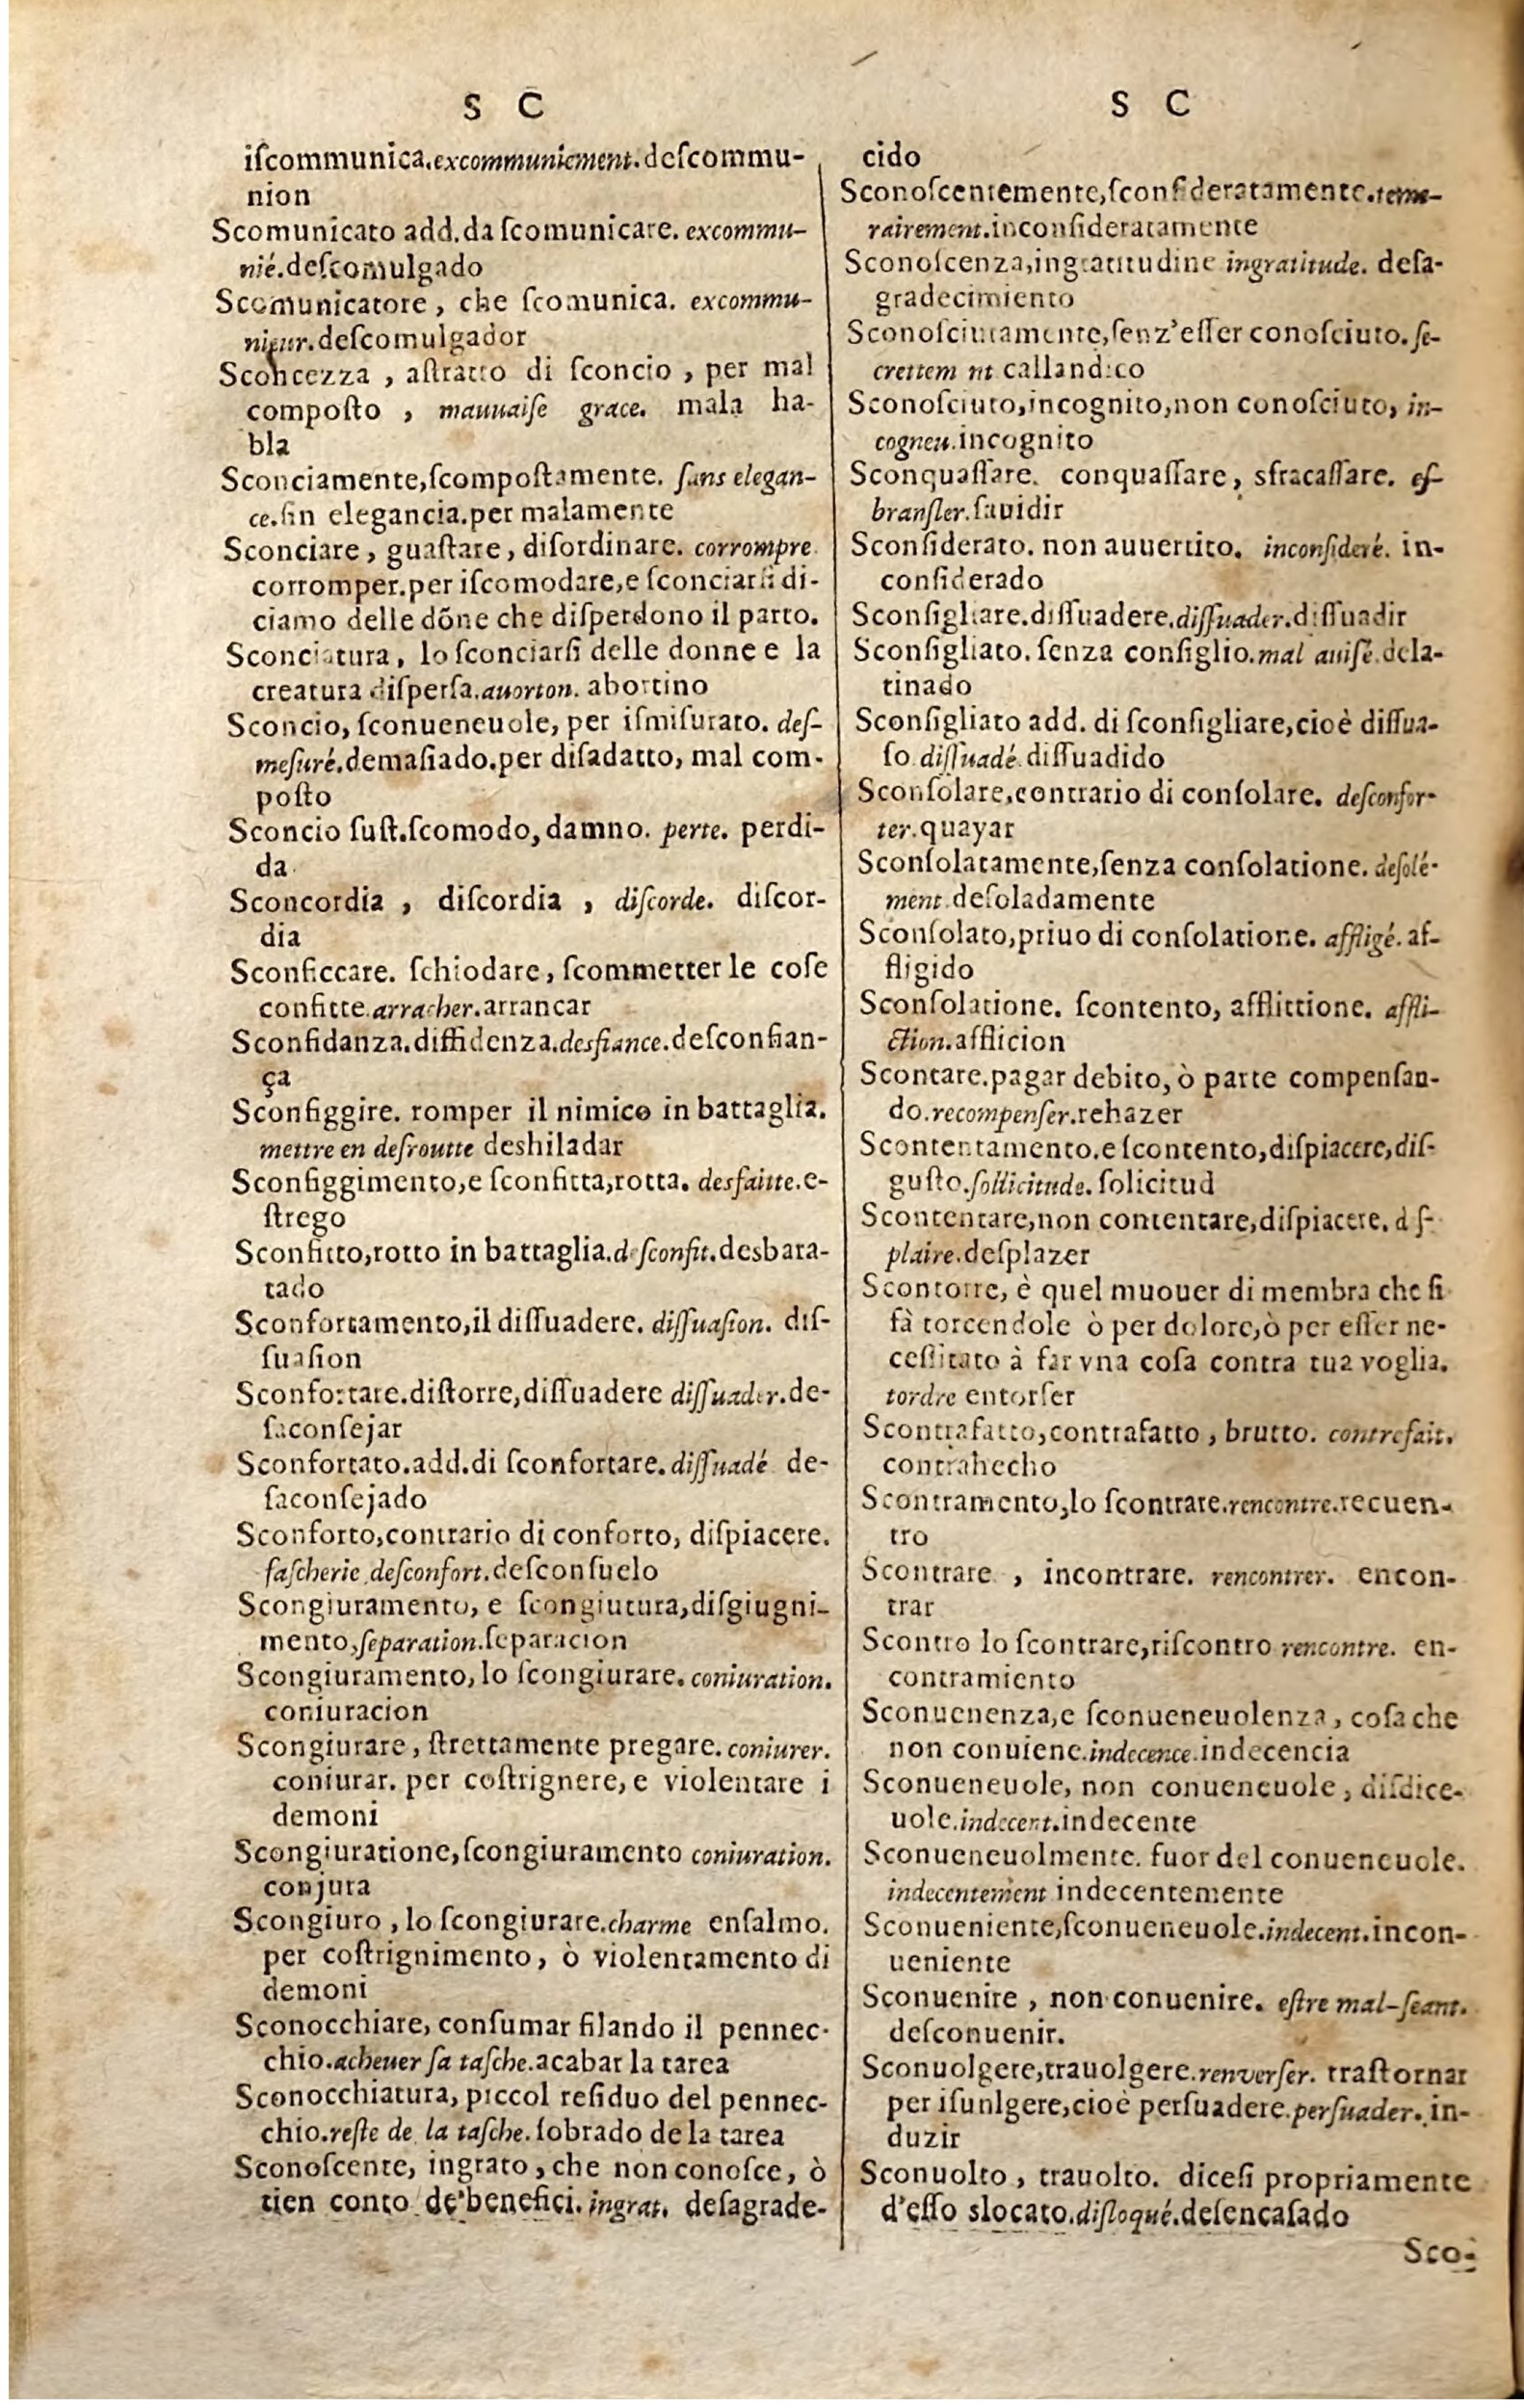 S C
iſcommunica.excommuniement.deſcommu-
nion
Scomunicato add.da ſcomunicare. excommu-
nié.deſcomulgado
Scomunicatore, che ſcomunica. excommu-
nieur.deſcomulgador
Sconcezza, aſtratto di ſconcio, per mal
compoſto, mauuaiſe grace. mala ha-
bla
Sconciamente,ſcompoſtamente. ſans elegan-
ce.ſin elegancia.per malamente
Sconciare, guaſtare, diſordinare. corrompre
corromper.per iſcomodare,e ſconciarſi di-
ciamo delle dõne che diſperdono il parto.
Sconciatura, lo ſconciarſi delle donne e la
creatura diſperſa.auorton. abortino
Sconcio, ſconueneuole, per iſmiſurato. deſ-
meſuré.demaſiado.per diſadatto, mal com-
poſto
Sconcio ſuſt.ſcomodo, damno. perte. perdi-
da
Sconcordia, diſcordia, diſcorde. diſcor-
dia
Sconficcare. ſchiodare, ſcommetter le coſe
confitte.arracher.arrancar
Sconfidanza.diffidenza.desfiance.deſconfian-
ça
Sconfiggire. romper il nimico in battaglia.
mettre en deſroutte deshiladar
Sconfiggimento,e ſconfitta,rotta. desfaitte.e-
ſtrego
Sconfitto,rotto in battaglia.deſconfit.desbara-
tado
Sconfortamento,il diſſuadere. diſſuaſion. diſ-
ſuaſion
Sconfortare.diſtorre,diſſuadere diſſuader.de-
ſaconſejar
Sconfortato.add.di ſconfortare.diſſuadé de-
ſaconſejado
Sconforto,contrario di conforto, diſpiacere.
faſcherie.deſconfort.deſconſuelo
Scongiuramento, e ſcongiutura,diſgiugni-
mento,ſeparation.ſeparacion
Scongiuramento, lo ſcongiurare. coniuration.
coniuracion
Scongiurare, ſtrettamente pregare. coniurer.
coniurar. per coſtrignere, e violentare i
demoni
Scongiuratione,ſcongiuramento coniuration.
conjura
Scongiuro, lo ſcongiurare.charme enſalmo.
per coſtrignimento, ò violentamento di
demoni
Sconocchiare, conſumar filando il pennec-
chio.acheuer ſa taſche.acabar la tarea
Sconocchiatura, piccol reſiduo del pennec-
chio.reſte de la taſche. ſobrado de la tarea
Sconoſcente, ingrato, che non conoſce, ò
tien conto de'benefici. ingrat. deſagrade-
S C
cido
Sconoſcentemente,ſconſideratamente.teme-
rairement.inconſideratamente
Sconoſcenza,ingratitudine ingratitude. deſa-
gradecimiento
Sconoſciutamente,ſenz'eſſer conoſciuto. ſe-
crettem nt callandico
Sconoſciuto,incognito,non conoſciuto, in-
cogneu.incognito
Sconquaſſare. conquaſſare, sfracaſſare. eſ-
branſler.ſauidir
Sconſiderato. non auuertito. inconſideré. in-
conſiderado
Sconſigliare.diſſuadere.diſſuader.diſſuadir
Sconſigliato. ſenza conſiglio.mal auiſé.dela-
tinado
Sconſigliato add. di ſconſigliare,cioè diſſua-
ſo diſſuadé diſſuadido
Sconſolare,contrario di conſolare. deſconfor-
ter.quayar
Sconſolatamente,ſenza conſolatione. deſolé-
ment deſoladamente
Sconſolato,priuo di conſolatione. affligé. af-
fligido
Sconſolatione. ſcontento, afflittione. affli-
ction.afflicion
Scontare.pagar debito, ò parte compenſan-
do.recompenſer.rehazer
Scontentamento.e ſcontento,diſpiacere,diſ-
guſto.ſollicitude. ſolicitud
Scontentare,non contentare,diſpiacere. d ſ-
plaire.deſplazer
Scontorre, è quel muouer di membra che ſi
fà torcendole ò per dolore,ò per eſſer ne-
ceſſitato à far vna coſa contra tua voglia.
tordre entorſer
Scontrafatto,contrafatto, brutto. contrefait.
contrahecho
Scontramento,lo ſcontrare.rencontre.recuen-
tro
Scontrare, incontrare. rencontrer. encon-
trar
Scontro lo ſcontrare,riſcontro rencontre. en-
contramiento
Sconuenenza,e ſconueneuolenza, coſa che
non conuiene.indecence.indecencia
Sconueneuole, non conueneuole, diſdice-
uole.indecent.indecente
Sconueneuolmente. fuor del conueneuole.
indecentement indecentemente
Sconueniente,ſconueneuole.indecent.incon-
ueniente
Sconuenire, non conuenire. eſtre mal-ſeant.
deſconuenir.
Sconuolgere,trauolgere.renverſer. traſtornar
per iſunlgere,cioè perſuadere.perſuader. in-
duzir
Sconuolto, trauolto. diceſi propriamente
d'eſſo slocato.diſloqué.deſencaſado
Sco-